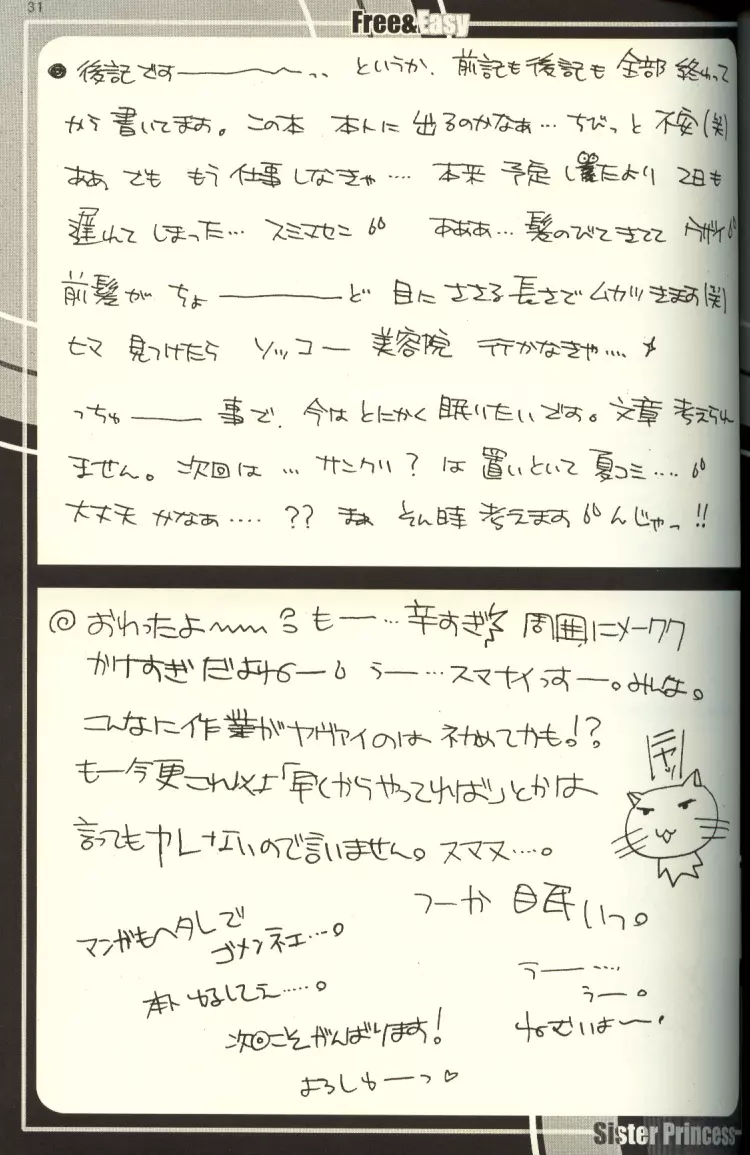 31
Free&Easy
後記です———〜‥ というか、前記も後記も全部終わって
から書いてます。この本 本トに出るのかなぁ…ちびっと不安(笑)
ああ、でも もう仕事しなきゃ…. 本来予定してたより2日も
遅れてしまった… スミマセン ああぁ…髪のびてきてて ウザイ
前髪がちょ————ど目にささる長さでムカツきます(笑)
ヒマ見つけたら ソッコー美容院行かなきゃ….
っちゅ———事で、今はとにかく眠りたいです。文章考えられ
ません。次回は…サンクリ?は置いといて夏コミ….
大丈夫かなぁ….?? まぁ そん時考えます んじゃっ!!
◎おわったよ〜〜 もー…辛すぎ 周囲にメーワク
かけすぎだよオレー うー…スマナイっすー。みんな。
こんなに作業がヤヴァイのは初めてかも!?
もー今更これ以上「早くからやってれば」とかは
言ってもヤレないので言いません。スマヌ…。
ヤッ
つーか眠いっ。
マンガもヘタレで
ゴメンネェ…。
本ト ゆるしてぇ…..。
うー—….
うー。
ねむいよ〜
次回こそがんばります!
よろしゅーっ♡
Sister Princess